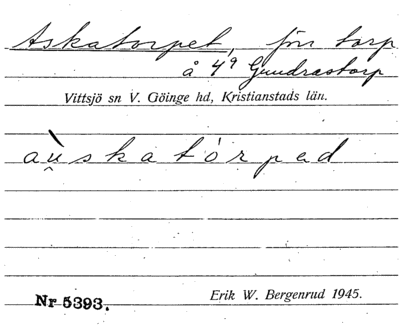 Askatorpet, förr torp
å 4⁹ Gundrastorp
Vittsjö sn V. Göinge hd, Kristianstads län.
aù̯skatórpad
Erik W. Bergenrud 1945.
Nr 5393.